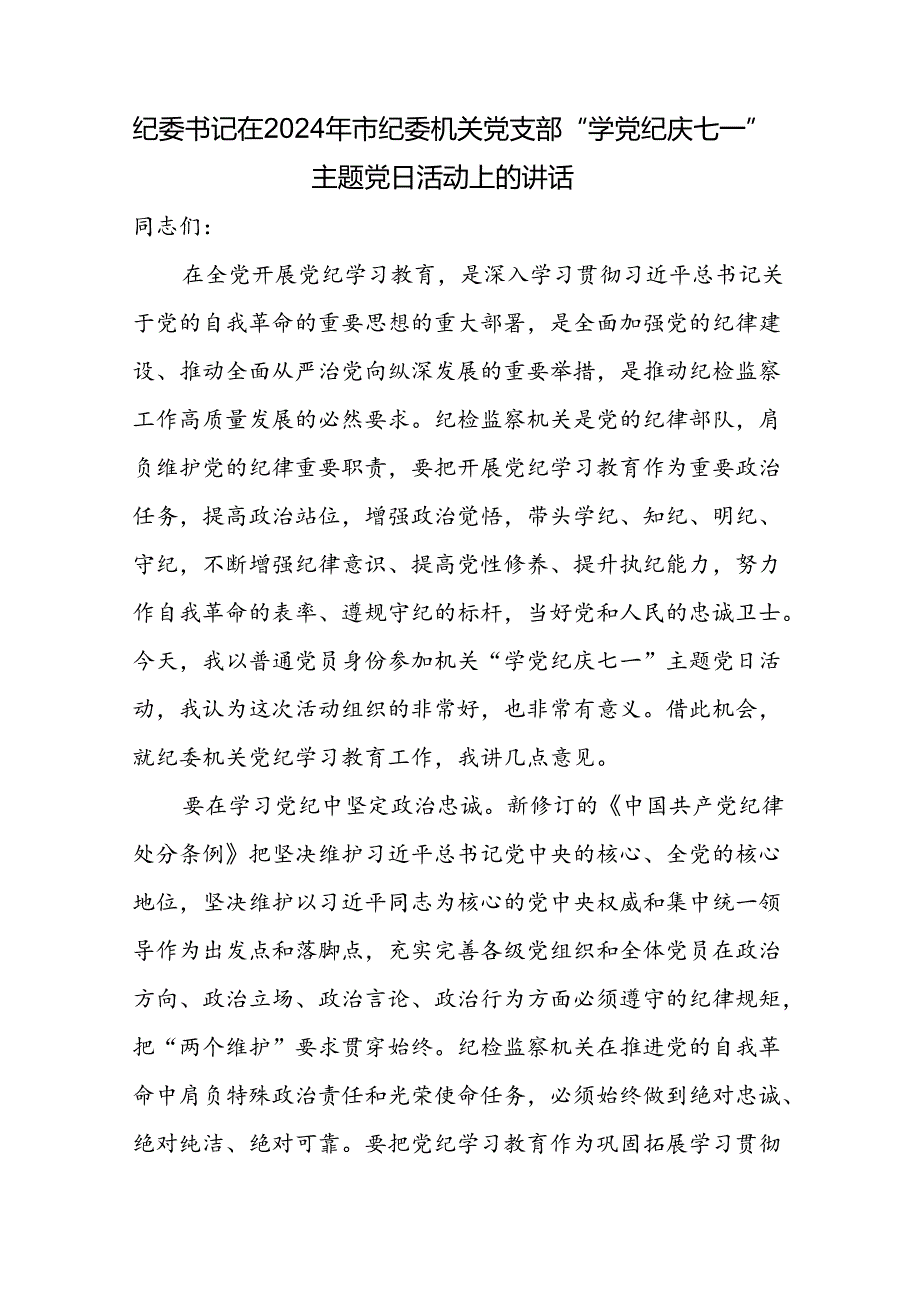 纪委书记在2024年市纪委机关党支部“学党纪庆七一”
主题党日活动上的讲话
同志们：
在全党开展党纪学习教育，是深入学习贯彻习近平总书记关
于党的自我革命的重要思想的重大部署，是全面加强党的纪律建
设、推动全面从严治党向纵深发展的重要举措，是推动纪检监察
工作高质量发展的必然要求。纪检监察机关是党的纪律部队，肩
负维护党的纪律重要职责，要把开展党纪学习教育作为重要政治
任务，提高政治站位，增强政治觉悟，带头学纪、知纪、明纪、
守纪，不断增强纪律意识、提高党性修养、提升执纪能力，努力
作自我革命的表率、遵规守纪的标杆，当好党和人民的忠诚卫士。
今天，我以普通党员身份参加机关“学党纪庆七一”主题党日活
动，我认为这次活动组织的非常好，也非常有意义。借此机会，
就纪委机关党纪学习教育工作，我讲几点意见。
要在学习党纪中坚定政治忠诚。新修订的《中国共产党纪律
处分条例》把坚决维护习近平总书记党中央的核心、全党的核心
地位，坚决维护以习近平同志为核心的党中央权威和集中统一领
导作为出发点和落脚点，充实完善各级党组织和全体党员在政治
方向、政治立场、政治言论、政治行为方面必须遵守的纪律规矩，
把“两个维护”要求贯穿始终。纪检监察机关在推进党的自我革
命中肩负特殊政治责任和光荣使命任务，必须始终做到绝对忠诚、
绝对纯洁、绝对可靠。要把党纪学习教育作为巩固拓展学习贯彻